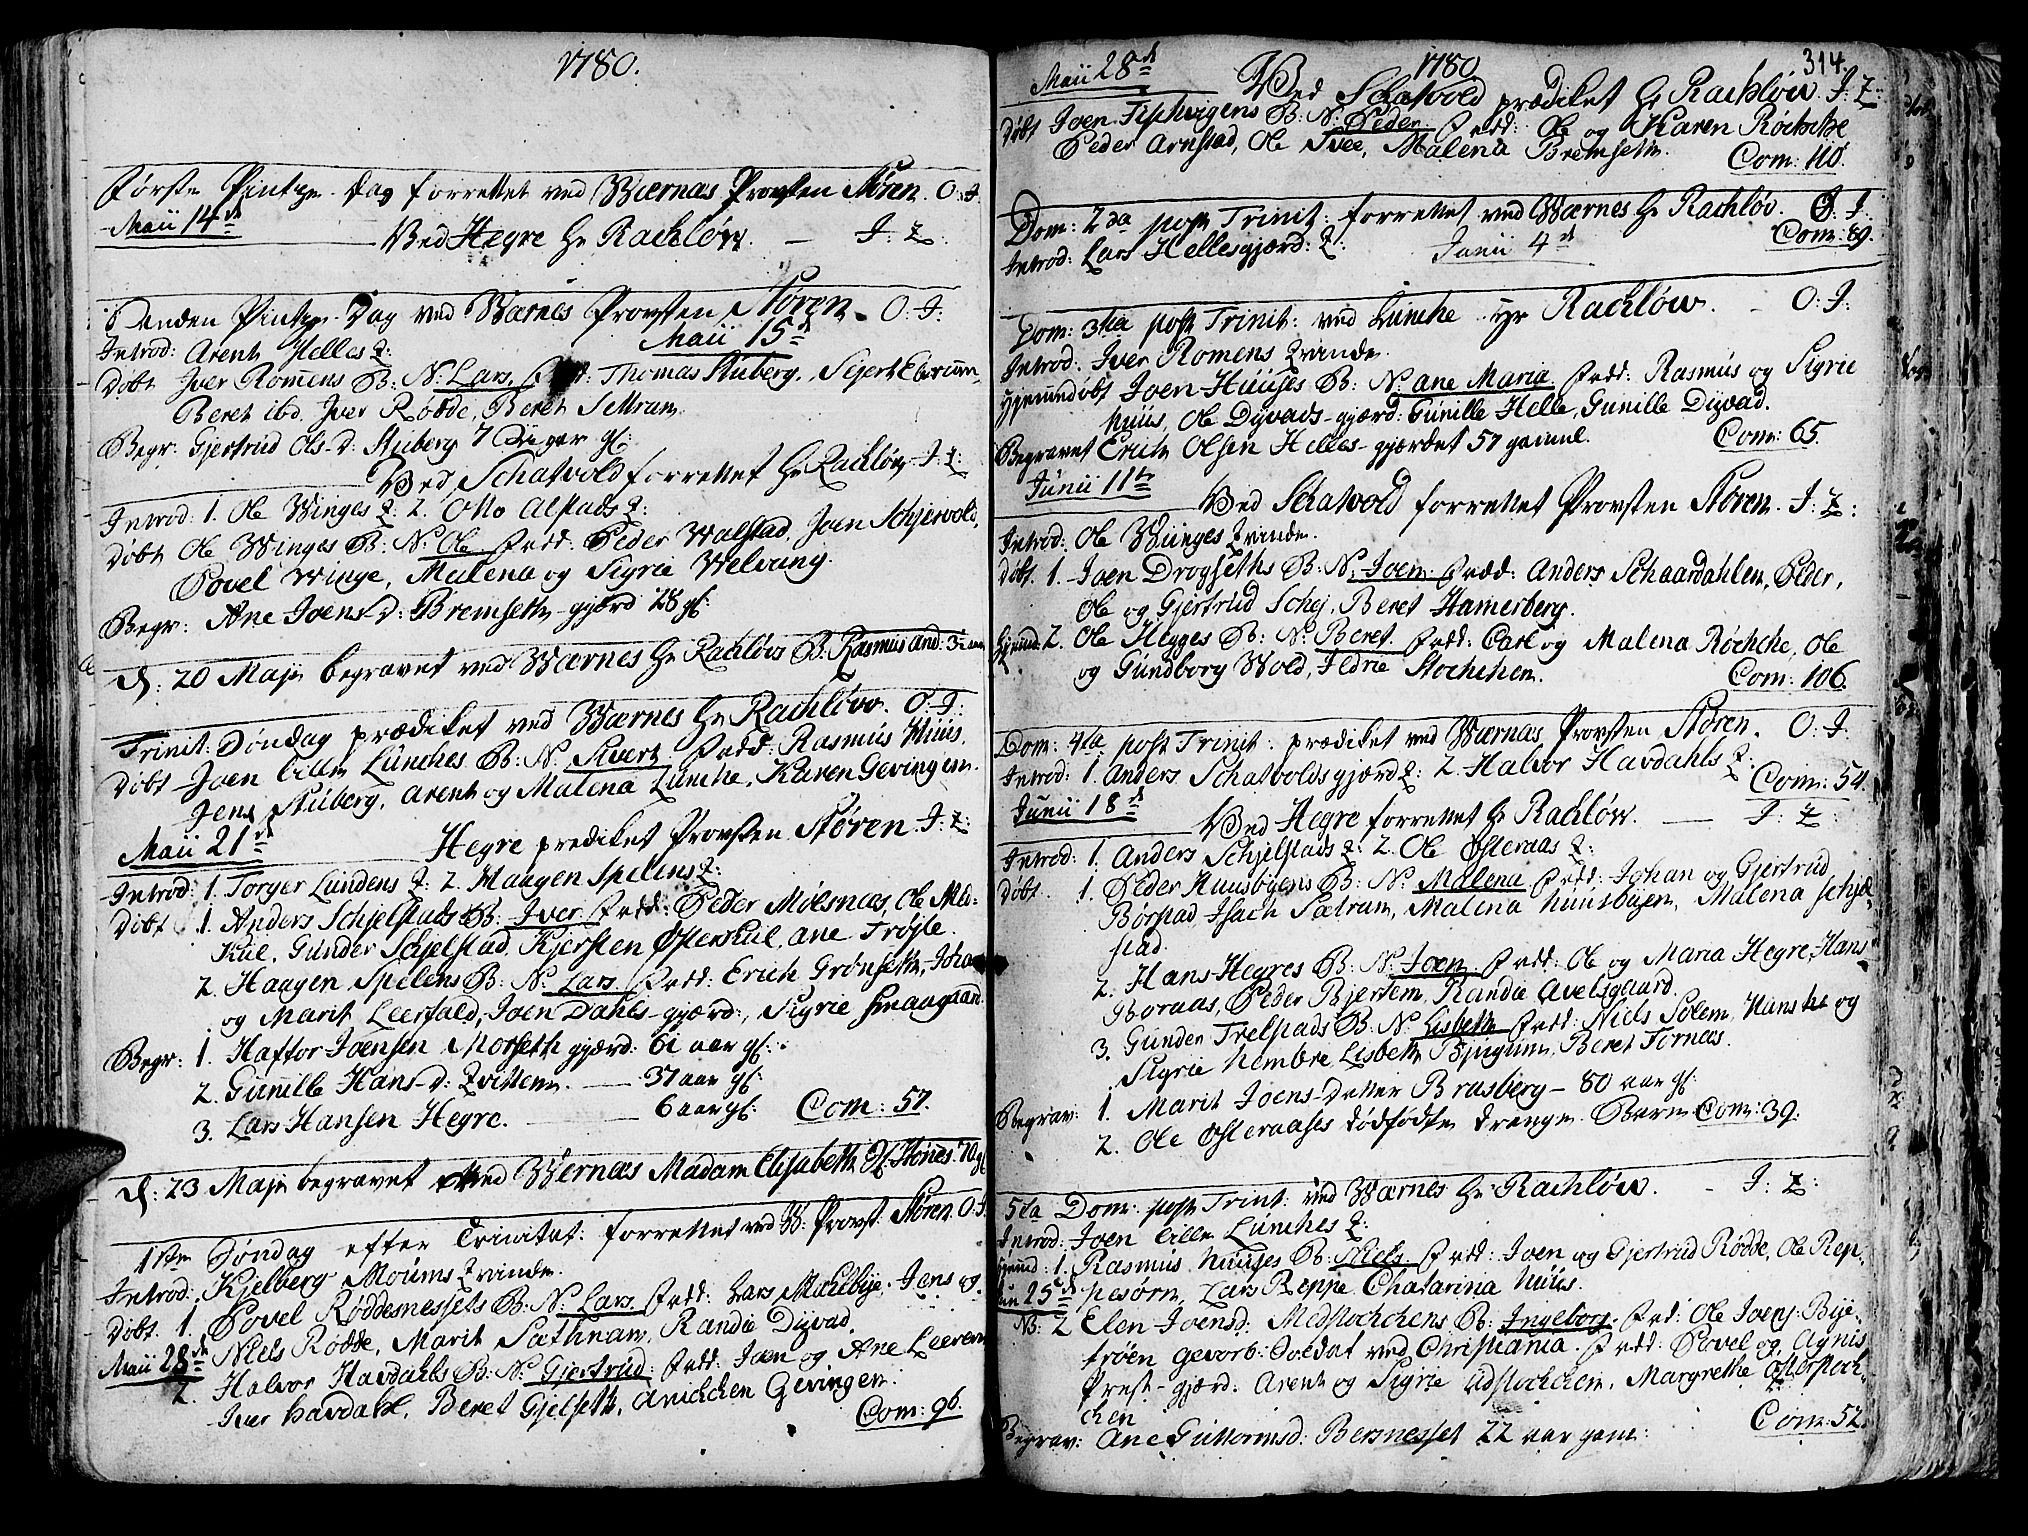 1780.
Første Pintze-Dag forrettet ved Wærnæs Provsten Støren. O: J.
Maii 14de
Ved Hegre Hr Rachløw. — J: Z:
Anden Pintze-Dag ved Wærnes Provsten Støren. O: J.
Maii 15de
Introd: Arent Helles Z:
Døbt Jver Romens B: N. Lars. Fadd: Thomas Stuberg, Sejert
Beret ibd. Jver Rødde, Beret Settram
Begr: Gjertrud Ols-d: Stuberg 7 Uger gl:
Ved Schatvold forrettet Hr Rachløw J: Z:
Introd: 1. Ole Winges Z: 2. Otto Alstads Z:
Døbt Ole Winges B: N. Ole Fadd: Peder Walstad, Joen Schjervold,
Povel Winge, Malena og Sigrie Welvang.
Begr: Ane Joens-d: Bremseth-gjærd 28 gl:
d: 20 Maji begravet ved Wærnes Hr Rachløw B. Rasmus And:
Trinit: Søndag prædiket ved Wærnes Hr Rachløw. O: J:
Døbt Joen lille Lunches B: N. Sivert Fadd: Rasmus Huus,
Jens Stuberg, Arent og Malena Lunche, Karen Gevingen.
Maii 21de
Hegre prediket Provsten Støren. J: Z:
Introd: 1. Torger Lundens Z: 2. Haagen Spelens Z:
Døbt 1. Anders Schjelstads B: Jver Fadd: Peder Mølsnæs, Ole Med-
Kiil, Gunder Schjelstad, Kjersten Østerkiil, Ane Trøjte.
2. Haagen Spelens B: N. Lars. Fadd: Erich Grønseth, Johan
og Marit Leerfald, Joen Dahls-gjærd:, Sigrie Smaagaard.
Begr: 1. Haftor Joensen Morseth gjærd: 61 aar gl:
2. Gunnille Hans-d: Zvittem. — 37 aar gl:
3. Lars Hansen Hegre. — 6 aar gl: Com: 57.
d: 23 Maji begravet ved Wernæs Madam Elisabeth Støres. 70 gl
1ste Søndag efter Trinitat: forrettet ved W: Provst: Støren O: J.
Introd: Kjelberg Moums Zvinde.
Døbt. 1. Povel Røddesnessets B: N. Lars. Fadd: Lars Mælbye, Jens og
Niels Rødde, Marit Sathnam, Randie Dyvad.
Maii 28de
2. Halvor Havdahls B: N. Gjertrud. Fadd: Joen og Ane Leeren
Jver Havdahl, Beret Gjelseth, Anichchen Gevingen.
Com: 96.
1780
314.
Maii 28de
Ved Schatvold prædiket Hr Rachløw. J: Z:
Døbt Joen Fischvigens B: N. Peder. Fadd: Ole og Karen Røchche
Peder Arnstad, Ole Svee, Malena Bremseth.
Com: 110.
Dom: 2da post Trinit: forrettet ved Wærnes Hr Rachløv. O: J.
Introd: Lars Hellesgjærd: Z:
Junii 4de
Com: 89.
Dom: 3tia post Trinit: ved Lunche Hr Rachløw. — O: J.
Introd: Jver Romens Zvinde.
Hjemmedøbt Joen Huuses B: N. Ane Maria. Fadd: Rasmus og Sigrie
Huus, Ole Dyvads-gjærd: Gunille Helle, Gunille Dyvad.
Begravet Erich Olsen Helles-gjærdet 57 gamml. Com: 65.
Junii 11te
Ved Schatvold forrettet Provsten Støren. J: Z:
Introd: Ole Wiinges Zvinde.
Døbt. 1. Joen Drogseths B: N. Joen. Fadd: Anders Schaardahlen, Peder,
Ole og Gjertrud Schej, Beret Hamerberg.
2. Ole Hegges B: N. Beret. Fadd: Carl og Malena Røchche, Ole
og Gundborg Wold, Jedrie Stochchen.
Com: 106.
Dom: 4ta post Trinit: prædiket ved Wærnæs Provsten Støren. O: J.
Introd: 1. Anders Schatvoldsgjærd Z: 2. Halvor Havdahls Z:
Com: 54.
Junii 18de
Ved Hegre forrettet Hr Rachløw. — J: Z:
Introd: 1. Anders Schjelstads Z: 2. Ole Østeraas Z:
Døbt. 1. Peder Huusbyens B: N. Malena Fadd: Johan og Gjertrud
Børstad, Jsach Sætram, Malena Huusbyen, Malena Schjel-
stad.
2. Hans Hegres B: N. Joen Fadd: Ole og Maria Hegre, Hans
Moraas, Peder Bjertem, Randie Avelsgaard.
3. Gunder Trelstads B: N. Lisbeth Fadd: Niels Solem, Hans og
Sigrie Nembre, Lisbeth Bjugum, Beret Tornæs.
Begrav: 1. Marit Joens-datter Brusberg — 80 aar gl:
2. Ole Østeraases dødfødte drenge Barn Com: 39.
5ta Dom: post Trinit: ved Wærnes Hr Rachløw. — J: Z:
Introd: Joen lille Lunches Z:
1. Rasmus Huuses B: Niels. Fadd: Joen og Gjertrud Rødde, Ole Rep-
Jun 25de
pesørn, Lars Reppe, Chatarina Huus.
NB: 2 Elen Joensd: Medstochchens B: Ingeborg. Fad: Ole Joens: Bye-
trøen gevorb: Soldat ved Christiania. Fadd: Povel og Agnis
Prest-gjærd: Arent og Sigrie Udstochchen, Margrethe Østerstoch-
chen
Begrav: Ane Guttormsd: Bersnesset 22 aar gam: Com: 52.